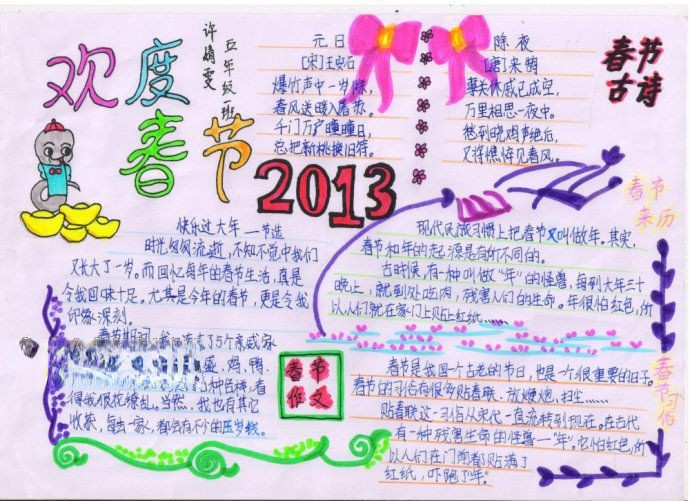 欢度
春节
许婧雯
五年级一班
元日
[宋]王安石
爆竹声中一岁除,
春风送暖入屠苏。
千门万户曈曈日,
总把新桃换旧符。
除夜
[唐]来鹄
事关休戚已成空,
万里相思一夜中。
愁到晓鸡声绝后,
又将憔悴见春风。
春节
古诗
2013
快乐过大年——节选
时光匆匆流逝,不知不觉中我们
又长大了一岁。而回忆每年的春节生活,真是
令我回味十足。尤其是今年的春节,更是令我
印象深刻。
春节期间
35个亲戚家
盛,鸡、鸭、
种色烤,看
得我眼花缭乱。当然,我也有其它
收获,每去一家,都会有不少的压岁钱。
春节
作文
春节
来历
现代民俗习惯上把春节又叫做年。其实,
春节和年的起源是有所不同的。
古时候,有一种叫做"年"的怪兽,每到大年三十
晚上,就到处吃肉,残害人们的生命。年很怕红色,所
以人们就在家们上贴红纸……
春节
习俗
春节是我国一个古老的节日,也是一个很重要的日子。
春节的习俗有很多贴春联、放烟炮、扫尘……
贴春联这一习俗从宋代一直流转到现在。在古代
有一种残害生命的怪兽—"年"。它怕红色,所
以人们在门前都贴满了
红纸,吓跑了"年"。